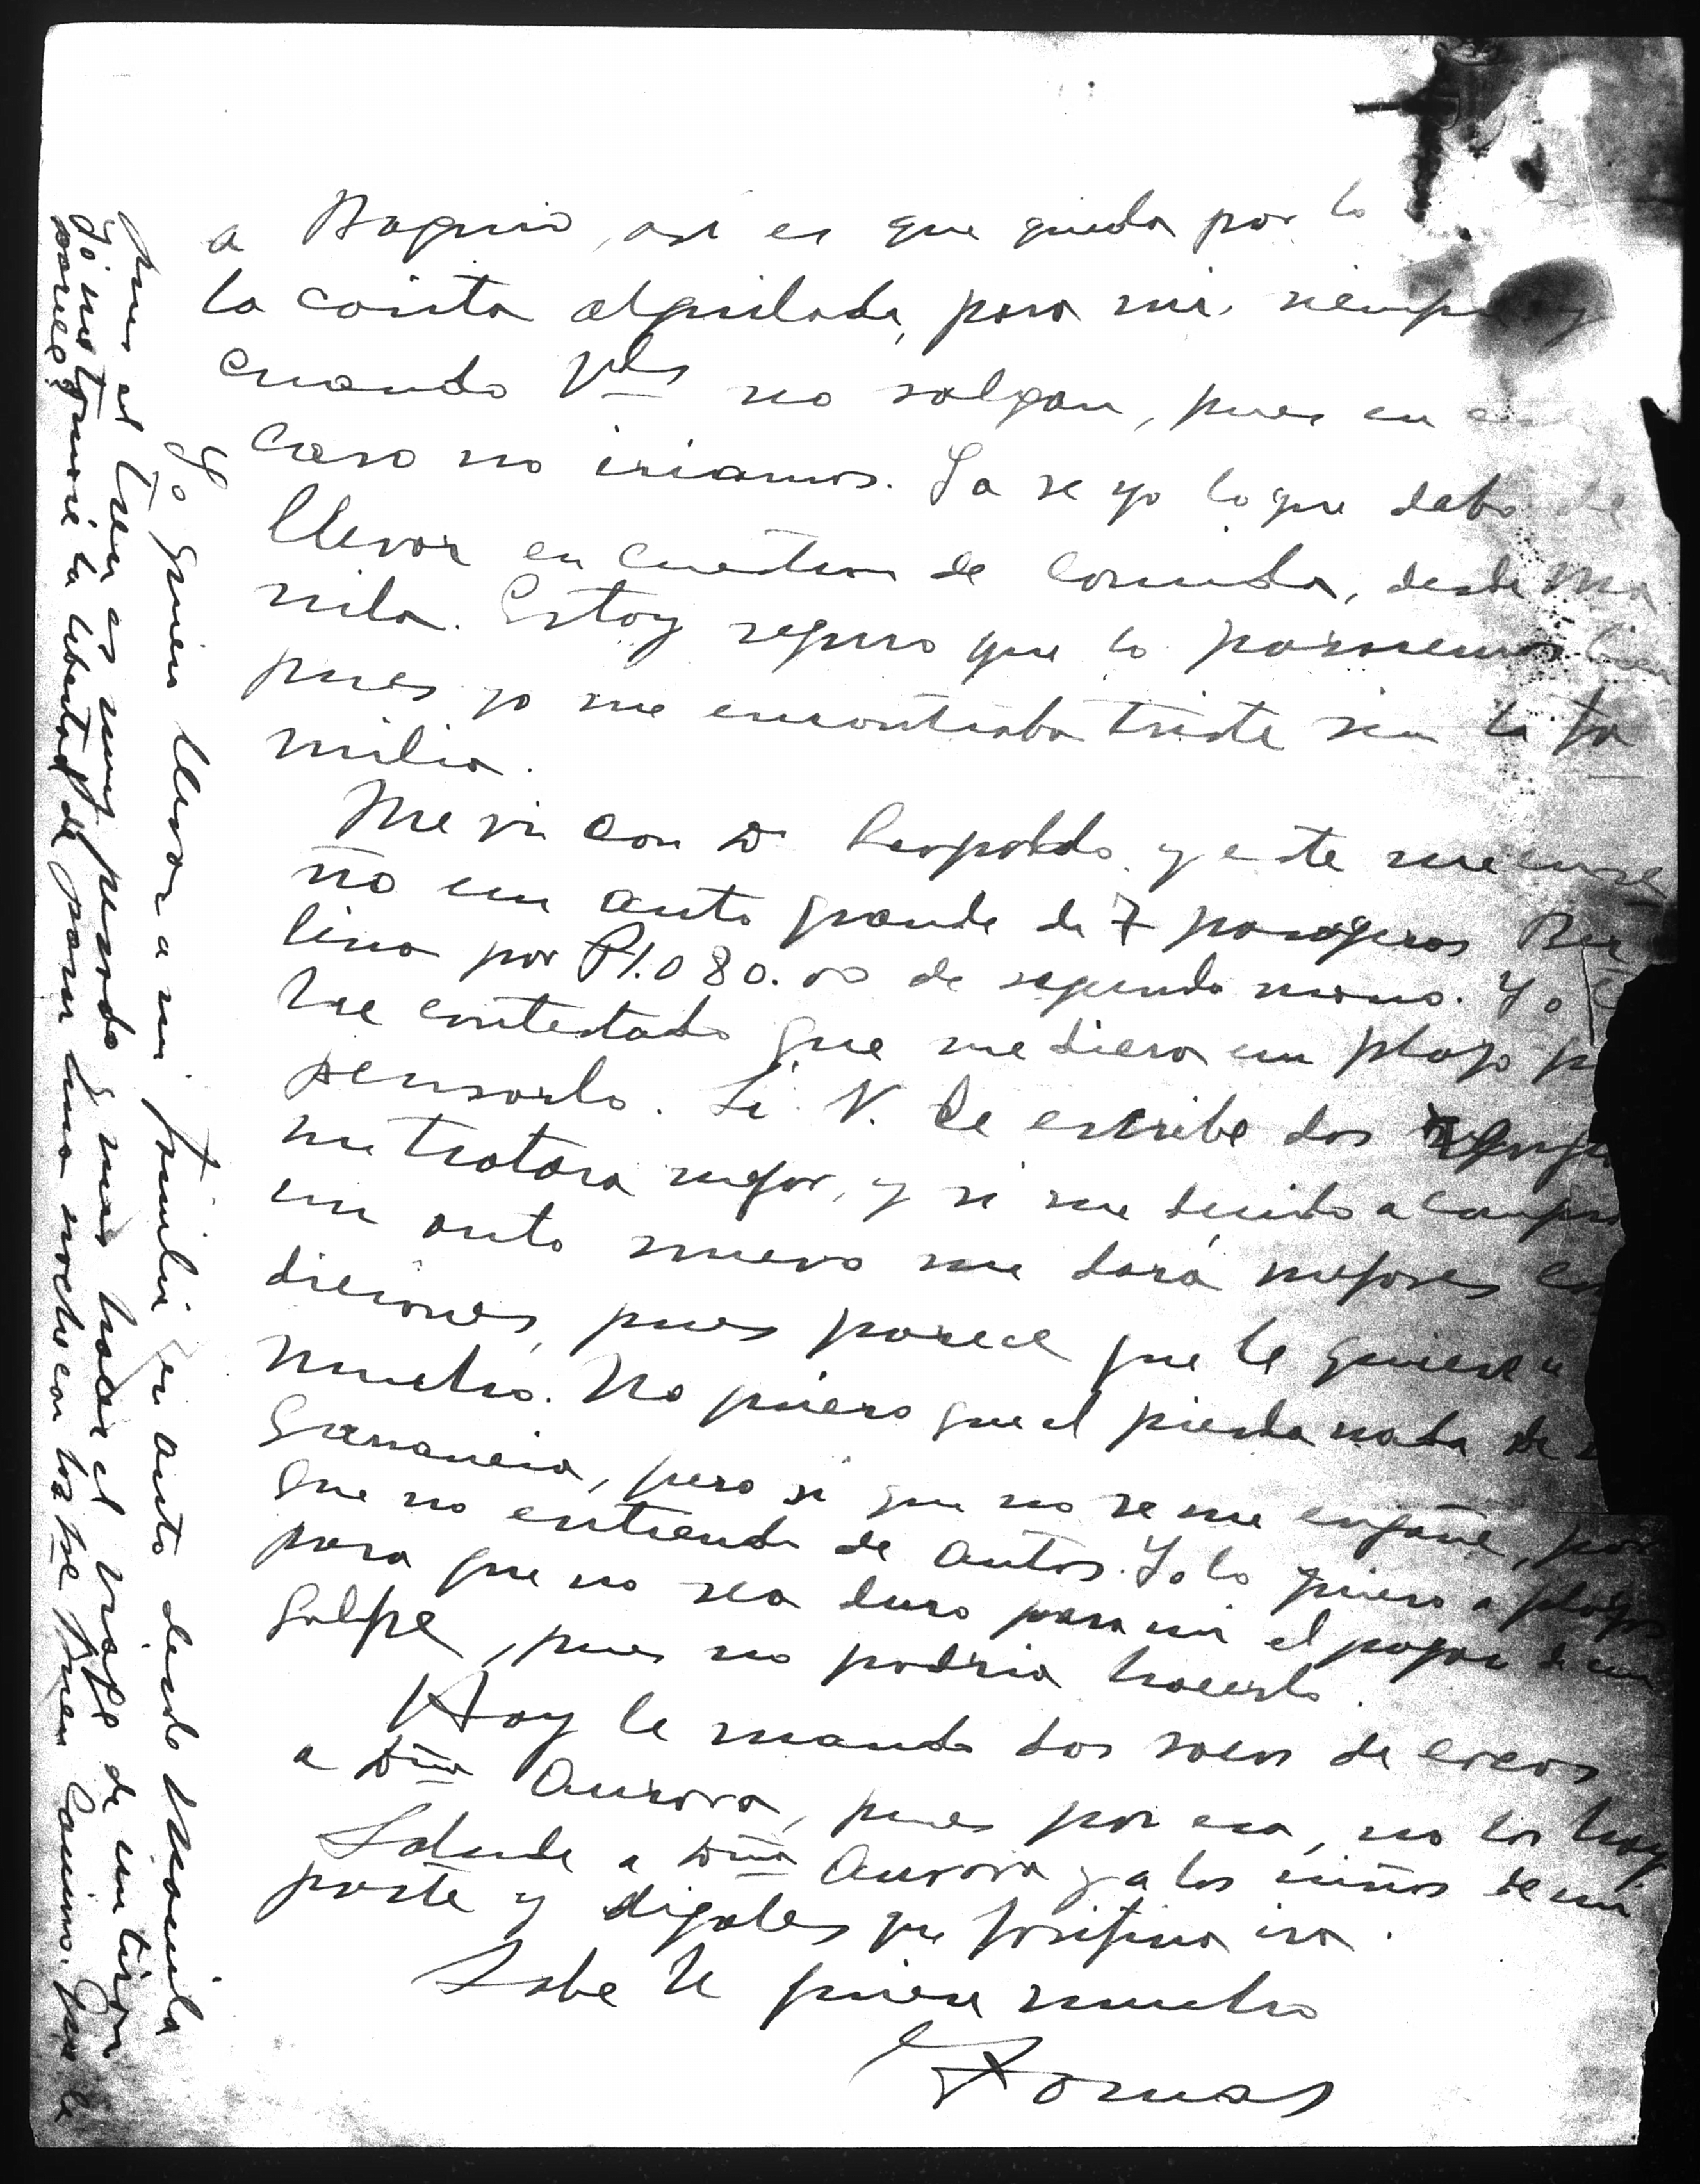 a Baguio, asi es que queda por lo
la casita alquilada, para mi. siempre y
cuando Vds no salgan, pues en ese
caso no iriamos. Ya se yo lo que debo de
llevar en cuestion de comida, desde Ma
nila. Estoy seguro que lo pasaremos bien
pues yo me encontraba triste sin la fa
milia.
Me vi con D. Leopoldo y este me ense
ño un auto grande de 7 pasageros Ber
lina por P1.080.00 de segunda mano. Yo le
he contestado que me diera un plazo
pensarlo. Si V. le escribe dos
me tratara mejor, y si me decido a
un auto nuevo me dará mejores con
diciones, pues parece que le quiere a
mucho. No quiero que el pierda nada de
ganancia, pero si que no se me engañe, por
que no entiendo de autos. Yo lo quiero a plazos
para que no sea duro para mi el pagar de un
golpe, pues no podria hacerlo.
Hoy le mando dos sacos de cocos
a Dña Aurora, pues por esa, no los hay.
Salude a Dña Aurora y a los niños de mi
parte y digales que Josefina ira.
Sabe le quiere mucho
Tomas
Yo quiero llevar a mi familia en auto desde Manila
pues el tren es muy pesado y mas hacer el viage de un tiron
Yo me tomaré la libertad de pasar una noche con los de